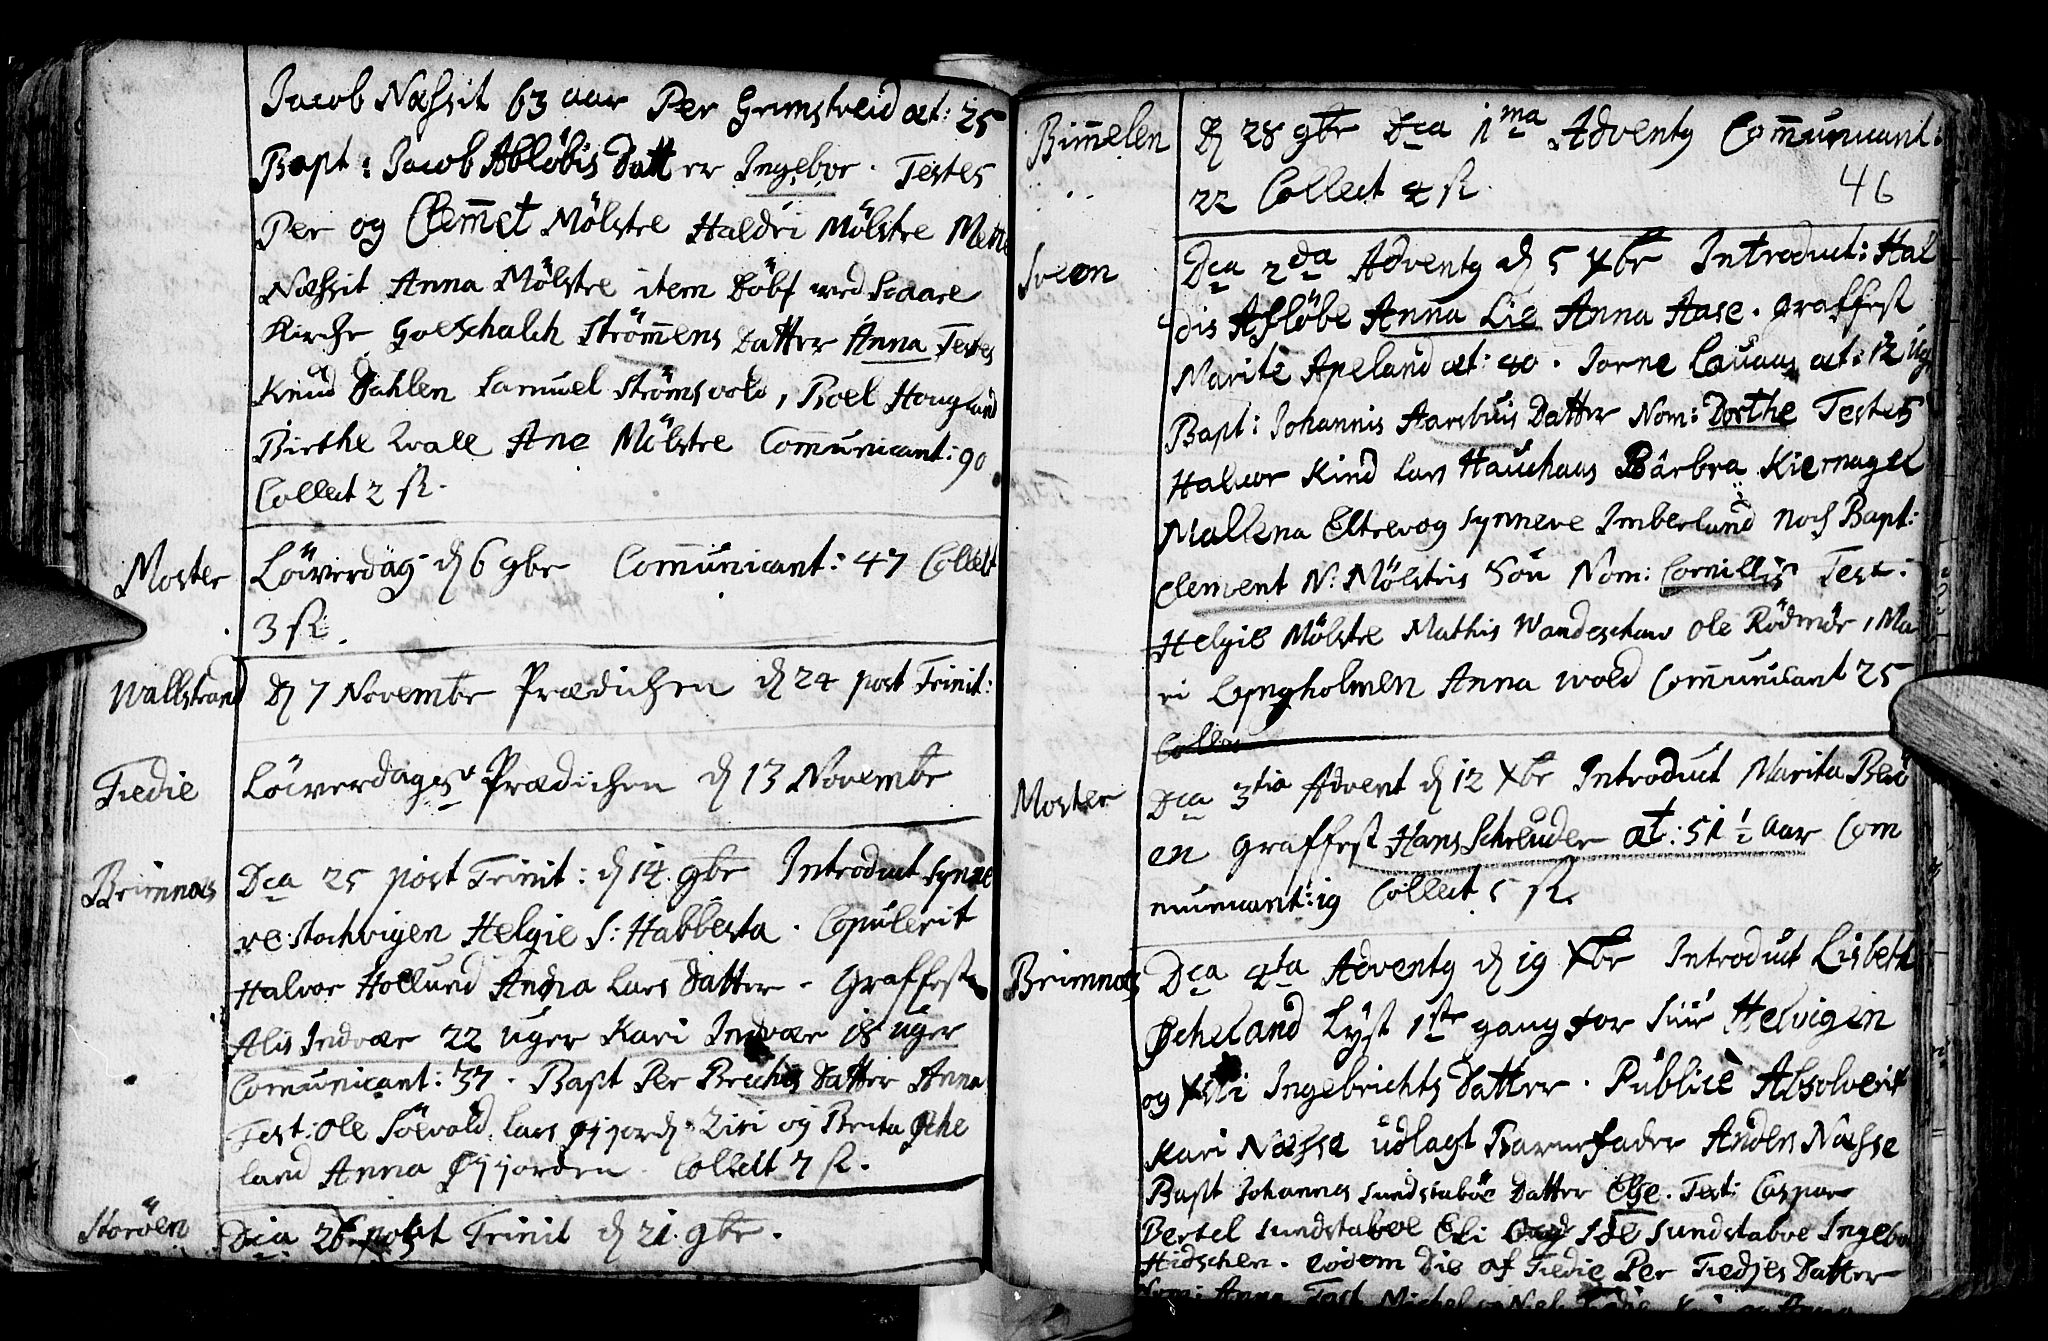 Jacob Næssit 63 aar Per Grimstveid æt: 25
Bapt: Jacob Abløbis Datter Ingebor. Testes
Per og Clemmet Mölstre Haldri Mölstre Mette
Næssit Anna Mölstre item Döbt ved Scaare
Kirche Goeschalch Strömmens Datter Anna Testes
Knud Dahlen Samuel Strömsvold, Roel Hougland
Birthe Wale Ane Mölstre Communicant: 90
Collect 2 ß.
Moster
Löiverdag d 6 9br Communicant: 47 Collect
3 ß.
Wallstrand
D 7 Novembr Prædichen d 24 post Trinit:
Fiedie
Löiverdags Prædichen d 13 Novembr
Brimnæs
Dca 25 post Trinit: d 14. 9br Introduct Synne
ve Stochvigen Helgie S: Habbesta. Copulerit
Halvor Hollund Anna Lars Datter. Graffest
Alis Indvær 22 uger Kari Indvær 18 uger
Communicant: 37. Bapt Per Brechis Datter Anna
Test: Ole Söevold, Lars Øyjord, Ziri og Brita Øche
land Anna Øyjorden. Collect 7 ß.
Storöen
Dca 26 post Trinit d 21. 9br.
Bimmelen
D 28 9br Dca 1ma Advents Communicant:
22 Collect 4 ß.
46
Sveen
Dca 2da Advents d 5 Xbr Introduct: Hal
dis Afløbe Anna Lie Anna Aase. Graffest
Marite Apeland æt: 40. Jorne Lauaas æt: 12 ug
Bapt: Johannis Aarebuis Datter Nom: Dorthe Testes
Halvor Kind Lars Hauchaas Barbra Kiernagel
Mallena Eltrevog Synneve Imberlund noch Bapt:
Clement N: Mölstris Sön Nom: Cornillis Test:
Helgie Mölstre Mathis Wandeschow Ole Rödmör, Ma
ri Lyngholmen Anna Wold Communicant 25
Collec
Moster
Dca 3tia Advent d 12 Xbr Introduct Marita
en Graffest Hans Schreuder æt: 51 1/2 aar Com
municant: 19 Collect 5 ß.
Brimnæs
Dca 4ta Advents d 19 Xbr Introduct Lisbeth
Øcheland Lyst 1ste gang for Siur Helvigen
og Ingebrichts Datter. Publice Absolverit
Kari Næsse udlagt Barnefader Anders Næsse
Bapt Johannes Sundstaböe Datter Else. Test: Caspar
Bertel Sundstaboe Eli Ide Sundstaboe Ingebor
Hidschen. eodem Die af Fiedie Per Fiedjes Datter
Nom: Anna Test Michel og Niels Fiedie